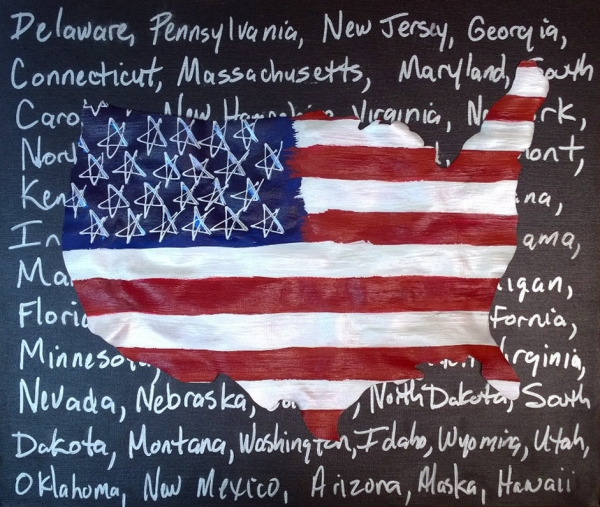 Delaware, Pennsylvania, New Jersey, Georgia,
Connecticut, Massachusetts, Maryland, South
Caro New Hampshire, Virginia, N rk,
Nor ont,
Ken na,
In ama,
Ma igan,
Flori fornia,
Minneso irginia,
Nevada, Nebraska, North Dakota, South
Dakota, Montana, Washington, Idaho, Wyoming, Utah,
Oklahoma, New Mexico, Arizona, Alaska, Hawaii